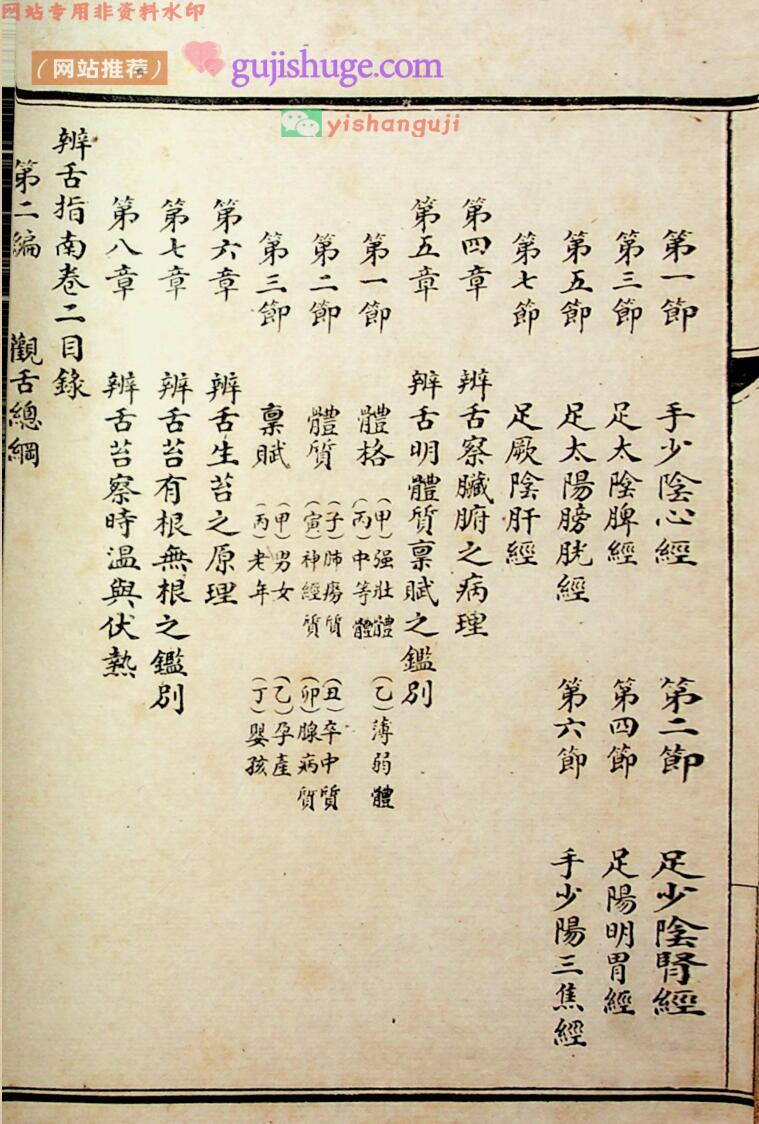 网站专用非资料水印
（网站推荐）
gujishuge.com
yishanguji
第一節 手少陰心經 第二節 足少陰腎經
第三節 足太陰脾經 第四節 足陽明胃經
第五節 足太陽膀胱經 第六節 手少陽三焦經
第七節 足厥陰肝經
第四章 辨舌察臟腑之病理
第五章 辨舌明體質禀賦之鑑別
第一節 體格 （甲）强壯體 （乙）薄弱體 （丙）中等體
第二節 體質 （子）肺癆質 （丑）卒中質 （寅）神經質 （卯）腺病質
第三節 禀賦 （甲）男女 （乙）孕產 （丙）老年 （丁）嬰孩
第六章 辨舌生苔之原理
第七章 辨舌苔有根無根之鑑別
第八章 辨舌苔察時溫與伏熱
辨舌指南卷二目錄
第二編 觀舌總綱